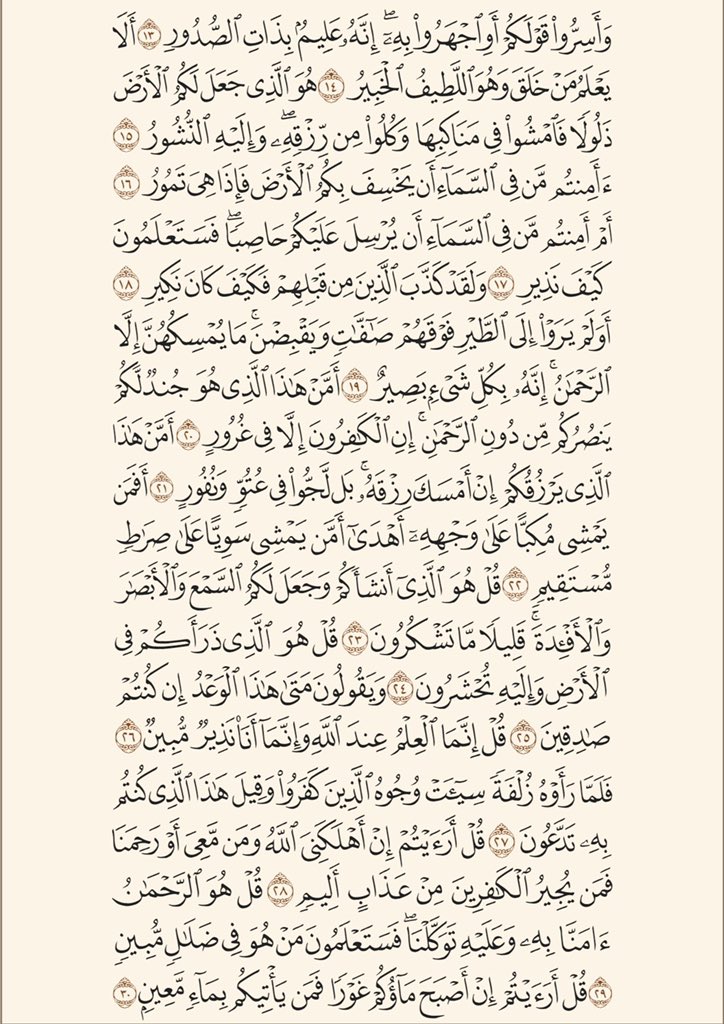 وَأَسِرُّوا۟ قَوْلَكُمْ أَوِ ٱجْهَرُوا۟ بِهِۦٓ ۖ إِنَّهُۥ عَلِيمٌۢ بِذَاتِ ٱلصُّدُورِ ١٣ أَلَا
يَعْلَمُ مَنْ خَلَقَ وَهُوَ ٱللَّطِيفُ ٱلْخَبِيرُ ١٤ هُوَ ٱلَّذِى جَعَلَ لَكُمُ ٱلْأَرْضَ
ذَلُولًا فَٱمْشُوا۟ فِى مَنَاكِبِهَا وَكُلُوا۟ مِن رِّزْقِهِۦ ۖ وَإِلَيْهِ ٱلنُّشُورُ ١٥
ءَأَمِنتُم مَّن فِى ٱلسَّمَآءِ أَن يَخْسِفَ بِكُمُ ٱلْأَرْضَ فَإِذَا هِىَ تَمُورُ ١٦
أَمْ أَمِنتُم مَّن فِى ٱلسَّمَآءِ أَن يُرْسِلَ عَلَيْكُمْ حَاصِبًا ۖ فَسَتَعْلَمُونَ
كَيْفَ نَذِيرِ ١٧ وَلَقَدْ كَذَّبَ ٱلَّذِينَ مِن قَبْلِهِمْ فَكَيْفَ كَانَ نَكِيرِ ١٨
أَوَلَمْ يَرَوْا۟ إِلَى ٱلطَّيْرِ فَوْقَهُمْ صَـٰٓفَّـٰتٍ وَيَقْبِضْنَ ۚ مَا يُمْسِكُهُنَّ إِلَّا
ٱلرَّحْمَـٰنُ ۚ إِنَّهُۥ بِكُلِّ شَىْءٍۭ بَصِيرٌ ١٩ أَمَّنْ هَـٰذَا ٱلَّذِى هُوَ جُندٌ لَّكُمْ
يَنصُرُكُم مِّن دُونِ ٱلرَّحْمَـٰنِ ۚ إِنِ ٱلْكَـٰفِرُونَ إِلَّا فِى غُرُورٍ ٢٠ أَمَّنْ هَـٰذَا
ٱلَّذِى يَرْزُقُكُمْ إِنْ أَمْسَكَ رِزْقَهُۥ ۚ بَل لَّجُّوا۟ فِى عُتُوٍّ وَنُفُورٍ ٢١ أَفَمَن
يَمْشِى مُكِبًّا عَلَىٰ وَجْهِهِۦٓ أَهْدَىٰٓ أَمَّن يَمْشِى سَوِيًّا عَلَىٰ صِرَٰطٍ
مُّسْتَقِيمٍ ٢٢ قُلْ هُوَ ٱلَّذِىٓ أَنشَأَكُمْ وَجَعَلَ لَكُمُ ٱلسَّمْعَ وَٱلْأَبْصَـٰرَ
وَٱلْأَفْـِٔدَةَ ۖ قَلِيلًا مَّا تَشْكُرُونَ ٢٣ قُلْ هُوَ ٱلَّذِى ذَرَأَكُمْ فِى
ٱلْأَرْضِ وَإِلَيْهِ تُحْشَرُونَ ٢٤ وَيَقُولُونَ مَتَىٰ هَـٰذَا ٱلْوَعْدُ إِن كُنتُمْ
صَـٰدِقِينَ ٢٥ قُلْ إِنَّمَا ٱلْعِلْمُ عِندَ ٱللَّهِ وَإِنَّمَآ أَنَا۠ نَذِيرٌ مُّبِينٌ ٢٦
فَلَمَّا رَأَوْهُ زُلْفَةً سِيٓـَٔتْ وُجُوهُ ٱلَّذِينَ كَفَرُوا۟ وَقِيلَ هَـٰذَا ٱلَّذِى كُنتُم
بِهِۦ تَدَّعُونَ ٢٧ قُلْ أَرَءَيْتُمْ إِنْ أَهْلَكَنِىَ ٱللَّهُ وَمَن مَّعِىَ أَوْ رَحِمَنَا
فَمَن يُجِيرُ ٱلْكَـٰفِرِينَ مِنْ عَذَابٍ أَلِيمٍ ٢٨ قُلْ هُوَ ٱلرَّحْمَـٰنُ
ءَامَنَّا بِهِۦ وَعَلَيْهِ تَوَكَّلْنَا ۖ فَسَتَعْلَمُونَ مَنْ هُوَ فِى ضَلَـٰلٍ مُّبِينٍ
٢٩ قُلْ أَرَءَيْتُمْ إِنْ أَصْبَحَ مَآؤُكُمْ غَوْرًا فَمَن يَأْتِيكُم بِمَآءٍ مَّعِينٍۭ ٣٠